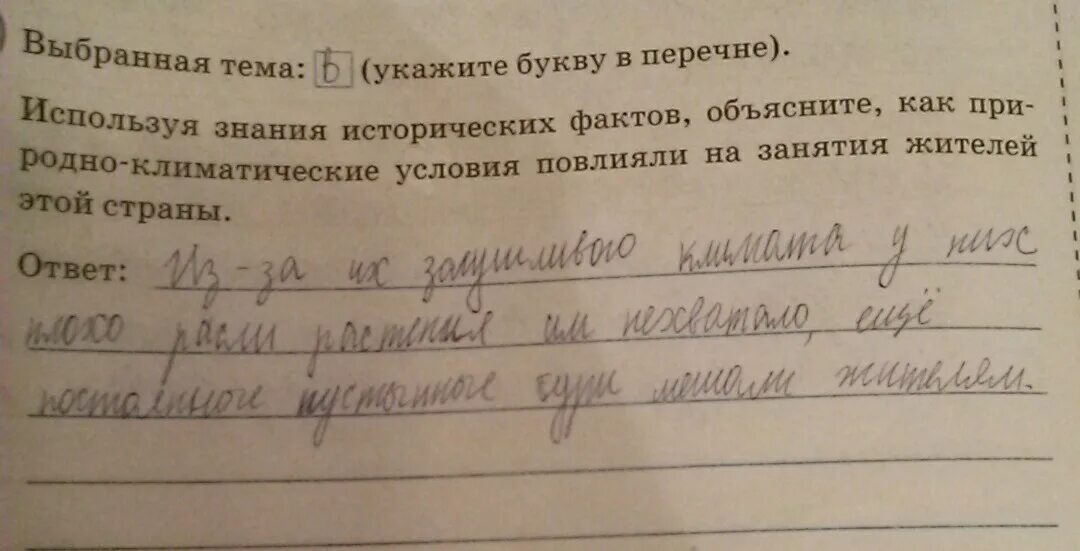 Выбранная тема: В (укажите букву в перечне).
Используя знания исторических фактов, объясните, как при-
родно-климатические условия повлияли на занятия жителей
этой страны.
Ответ: Из-за их засушливого климата у них
плохо расли растения им нехватало, ещё
постоянные пустынные бури мешали жителям.